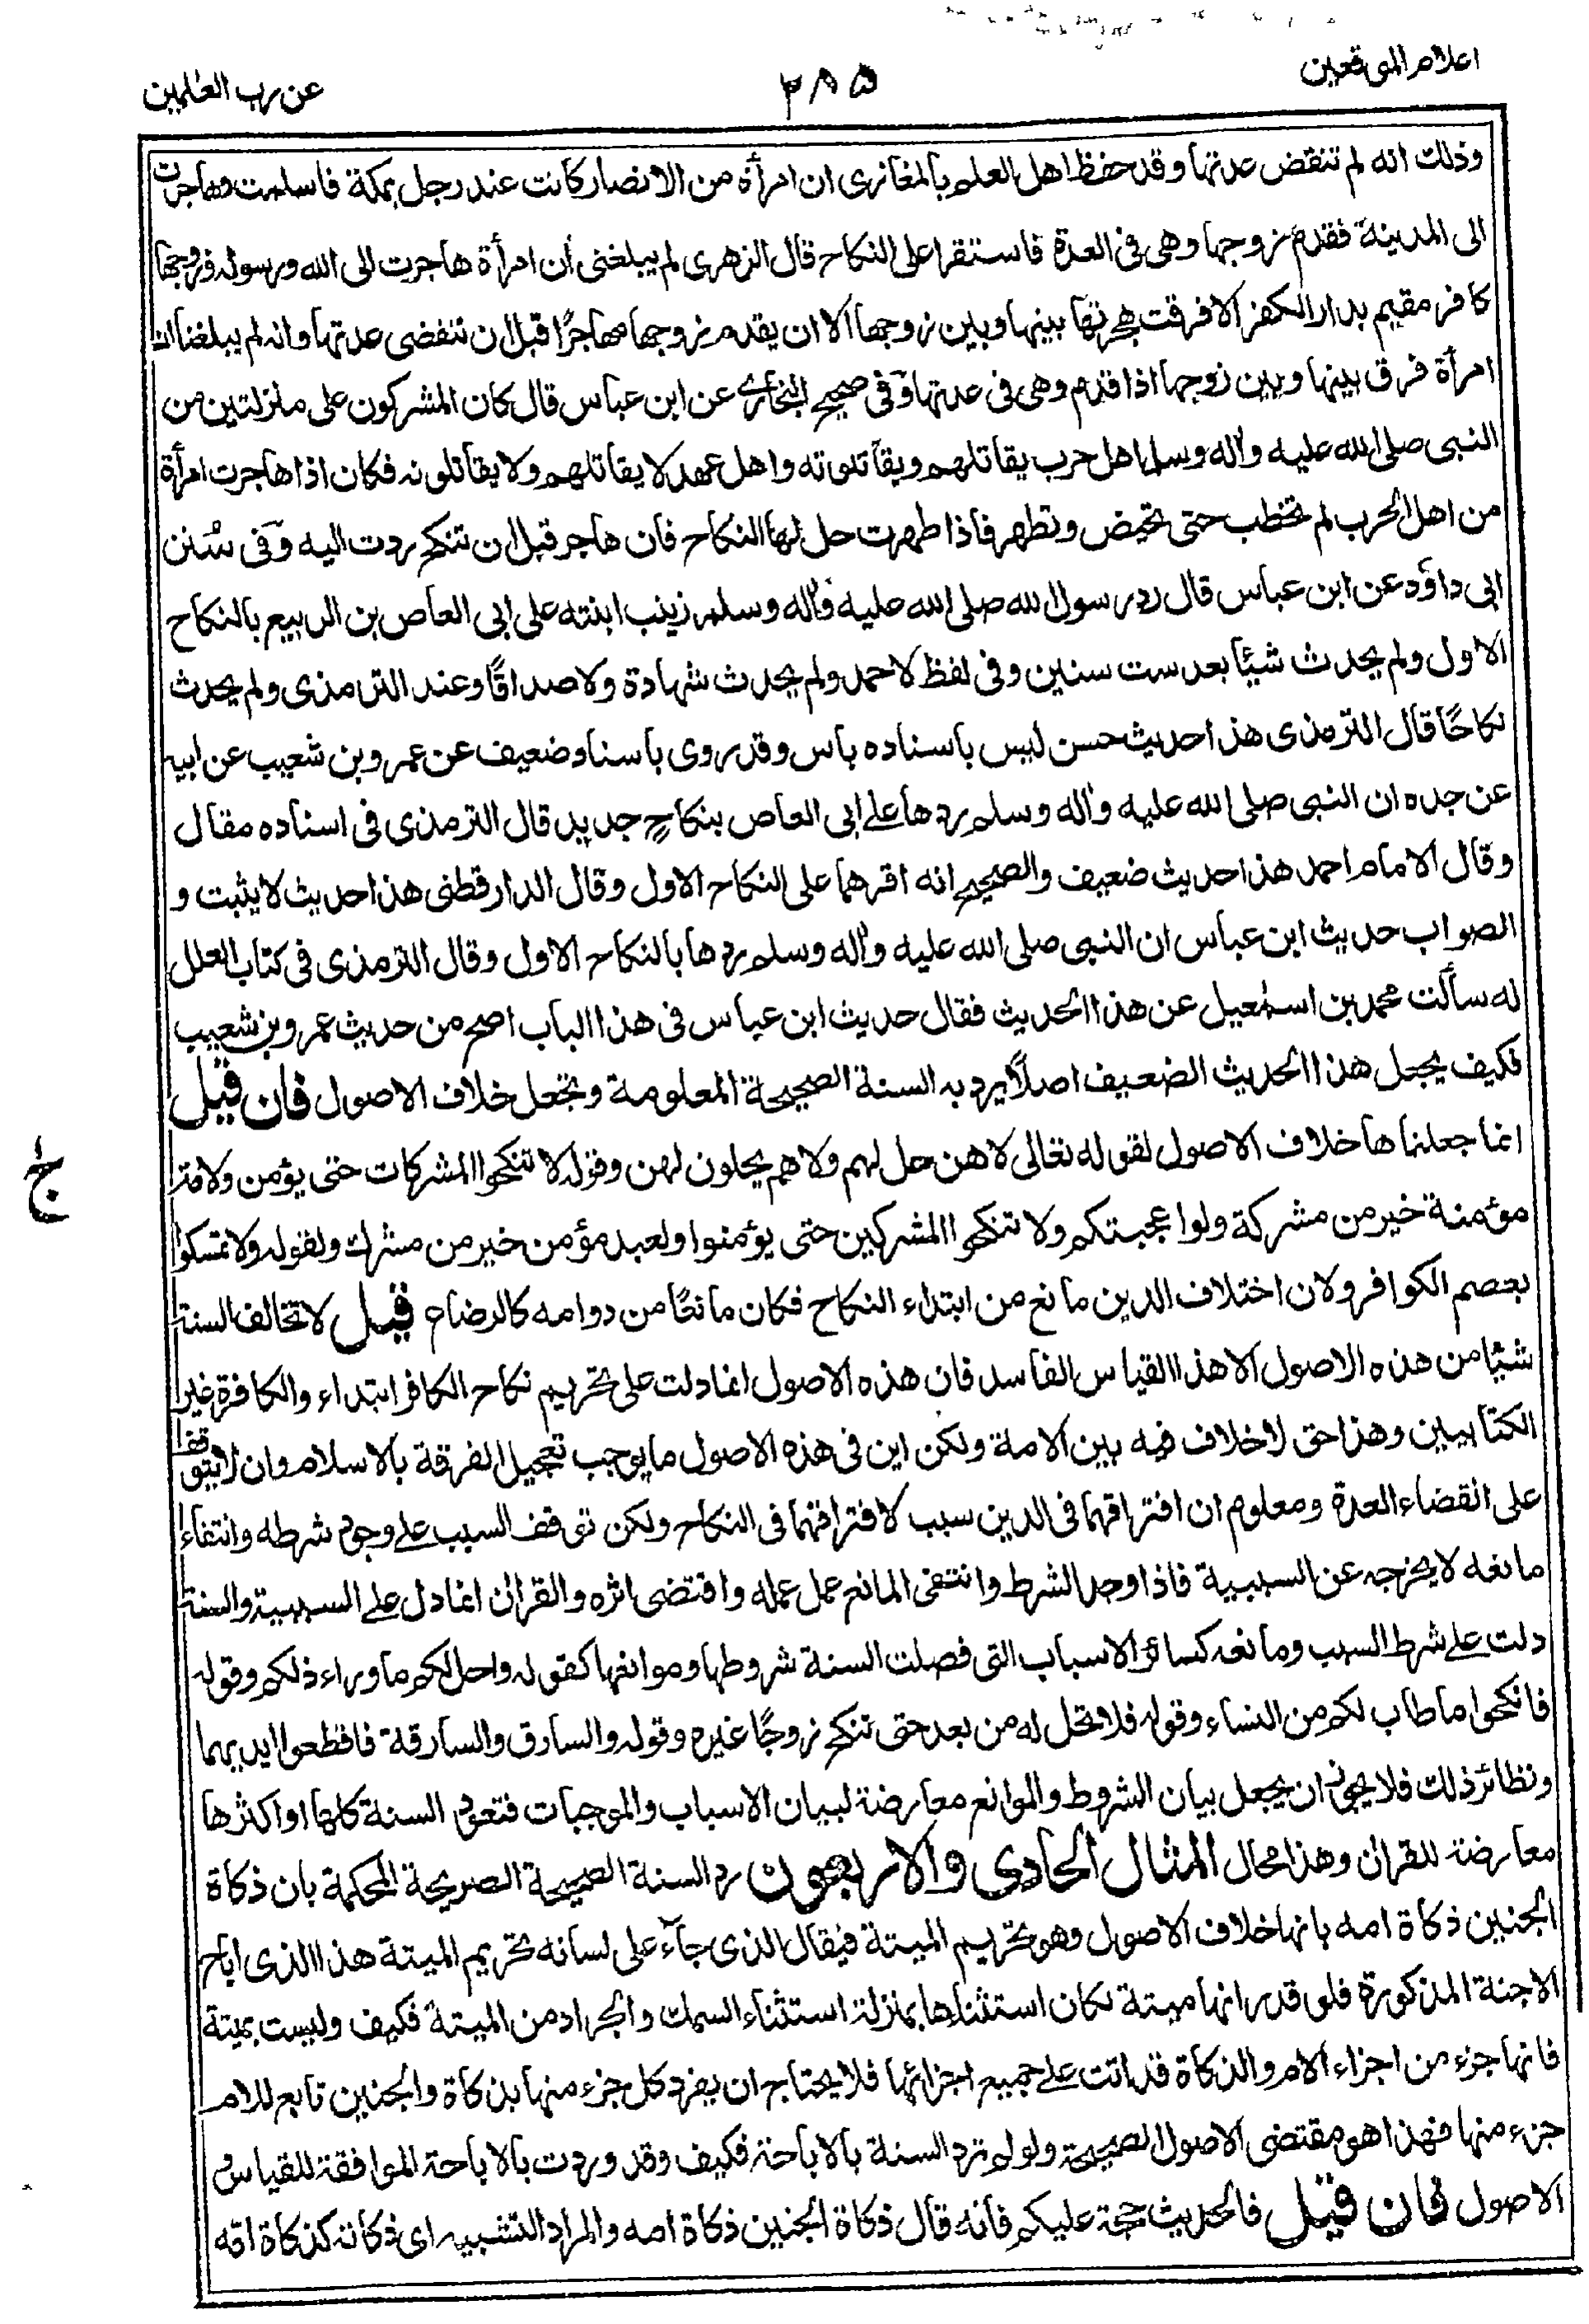 اعلام الموقعين
٣٨٥
عن رب العٰلمين
وذلك انه لم تنقض عدتها وقد حفظ اهل العلم بالمغازى ان امرأة من الانصار كانت عند رجل بمكة فاسلمت وهاجرت
الى المدينة فقدم زوجها وهى فى العدة فاستقرا على النكاح قال الزهرى لم يبلغنى أن امرأة هاجرت الى الله ورسوله وزوجها
كافر مقيم بدار الكفر الا فرقت هجرتها بينها وبين زوجها الا ان يقدم زوجها مهاجرًا قبل ان تنقضى عدتها وانه لم يبلغنا ان
امرأة فرق بينها وبين زوجها اذا قدم وهى فى عدتها وفى صحيح البخارے عن ابن عباس قال كان المشركون على منزلتين من
النبى صلى الله عليه واٰله وسلم اهل حرب يقاتلهم ويقاتلونه واهل عهد لا يقاتلهم ولا يقاتلونه فكان اذا هاجرت امرأة
من اهل الحرب لم تخطب حتى تحيض وتطهر فاذا طهرت حل لها النكاح فان هاجر قبل ان تنكح ردت اليه وفى سُنن
ابى داؤد عن ابن عباس قال رد رسول الله صلى الله عليه واٰله وسلم زينب ابنته على ابى العاص بن الربيع بالنكاح
الاول ولم يحدث شيئا بعد ست سنين وفى لفظ لاحمد ولم يحدث شهادة ولا صداقًا وعند الترمذى ولم يحدث
نكاحًا قال الترمذى هذا حديث حسن ليس باسناده باس وقد روى باسناد ضعيف عن عمرو بن شعيب عن ابيه
عن جده ان النبى صلى الله عليه واٰله وسلم ردها علے ابى العاص بنكاحٍ جديد قال الترمذى فى اسناده مقال
وقال الامام احمد هذا حديث ضعيف والصحيح انه اقرهما على النكاح الاول وقال الدارقطنى هذا حديث لا يثبت و
الصواب حديث ابن عباس ان النبى صلى الله عليه واٰله وسلم ردها بالنكاح الاول وقال الترمذى فى كتاب العلل
له سألت محمد بن اسمٰعيل عن هذا الحديث فقال حديث ابن عباس فى هذا الباب اصح من حديث عمرو بن شعيب
فكيف يجعل هذا الحديث الضعيف اصلًا يرد به السنة الصحيحة المعلومة وتجعل خلاف الاصول فان قيل
انما جعلناها خلاف الاصول لقوله تعالى لا هن حل لهم ولا هم يحلون لهن وقوله لا تنكحوا المشركات حتى يؤمن ولامة
مؤمنة خير من مشركة ولو اعجبتكم ولا تنكحوا المشركين حتى يؤمنوا ولعبد مؤمن خير من مشرك ولقوله ولا تمسكوا
بعصم الكوافر ولان اختلاف الدين مانع من ابتداء النكاح فكان مانعًا من دوامه كالرضاع قيل لا تخالف السنة
شيئا من هذه الاصول الا هذا القياس الفاسد فان هذه الاصول انما دلت على تحريم نكاح الكافر ابتداء والكافرة غير
الكتابيين وهذا حق لا خلاف فيه بين الامة ولكن اين فى هذه الاصول ما يوجب تعجيل الفرقة بالاسلام وان لا يتوقف
على انقضاء العدة ومعلوم ان افتراقهما فى الدين سبب لافتراقهما فى النكاح ولكن توقف السبب علے وجود شرطه وانتفاء
مانعه لا يخرجه عن السببية فاذا وجد الشرط وانتفى المانع عمل عمله واقتضى اثره والقراٰن انما دل علے السببية والسنة
دلت علے شرط السبب ومانعه كسائر الاسباب التى فصلت السنة شروطها وموانعها كقوله واحل لكم ما وراء ذلكم وقوله
فانكحوا ما طاب لكم من النساء وقوله فلا تحل له من بعد حتى تنكح زوجًا غيره وقوله والسارق والسارقة فاقطعوا ايديهما
ونظائر ذلك فلا يجوز ان يجعل بيان الشروط والموانع معارضة لبيان الاسباب والموجبات فتعود السنة كلها او اكثرها
معارضة للقراٰن وهذا محال المثال الحادى والاربعون رد السنة الصحيحة الصريحة المحكمة بان ذكاة
الجنين ذكاة امه بانها خلاف الاصول وهو تحريم الميتة فيقال الذى جاء على لسانه تحريم الميتة هذا الذى اباح
الاجنة المذكورة فلو قدر انها ميتة لكان استثناءها بمنزلة استثناء السمك والجراد من الميتة فكيف وليست بميتة
فانها جزء من اجزاء الام والذكاة قد اتت علے جميع اجزائها فلا يحتاج ان يفرد كل جزء منها بذكاة والجنين تابع للام
جزء منها فهذا هو مقتضى الاصول الصحيحة ولو لم ترد السنة بالاباحة فكيف وقد وردت بالاباحة الموافقة للقياس
الاصول فان قيل فالحديث حجة عليكم فانه قال ذكاة الجنين ذكاة امه والمراد التشبيه اى ذكاته كذكاة امّه